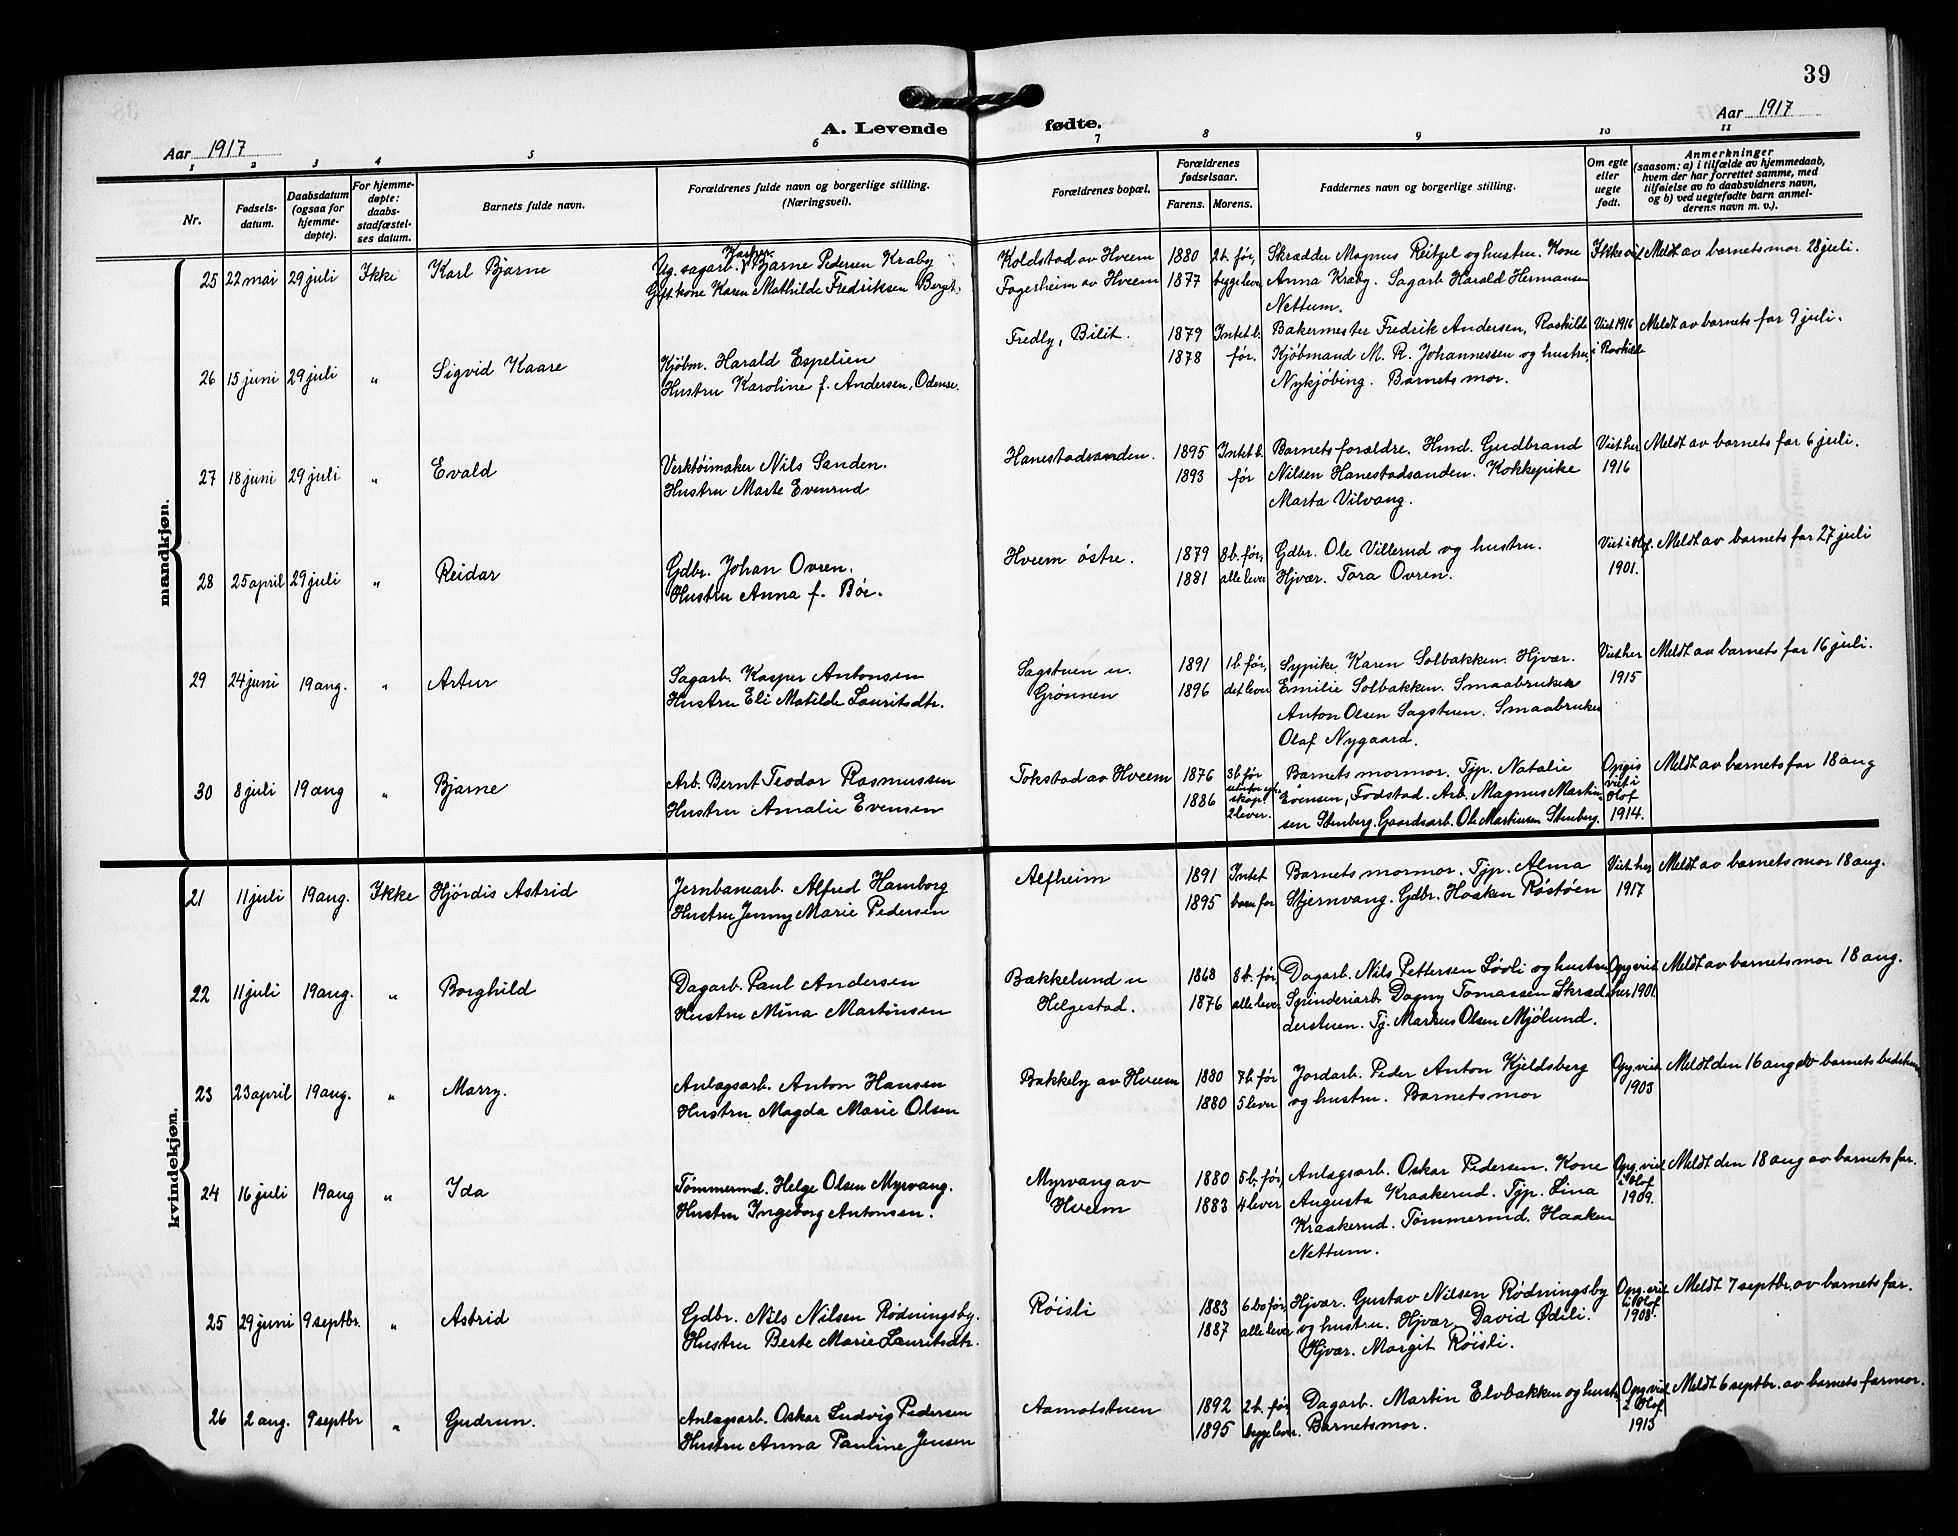 39
Aar 1917
A. Levende fødte.
Aar 1917
1 2 3 4 5 6 7 8 9 10 11
Nr.
Fødsels-
datum.
Daabsdatum
(ogsaa for
hjemme-
døpte).
For hjemme-
døpte:
daabs-
stadfæstel-
ses datum.
Barnets fulde navn.
Forældrenes fulde navn og borgerlige stilling.
(Næringsvei).
Forældrenes bopæl.
Forældrenes
fødselsaar.
Farens. Morens.
Faddernes navn og borgerlige stilling.
Om egte
eller
uegte
født.
Anmerkninger
(saasom: a) i tilfælde av hjemmedaab,
hvem der har forrettet samme, med
tilføielse av to daabsvidners navn,
og b) ved uegtefødte barn anmel-
derens navn m. v.).
mandkjøn.
25 22 mai 29 juli Ikke Karl Bjarne
Ug. sagarb. Kasper Bjarne Pedersen Kraby
Gift kone Karen Mathilde Fredriksen Berget.
Koldstad av Hveem
Fagerheim av Hveem
1880 2 b. før,
1877 begge lever
Skrædder Magnus Reitzel og hustru. Kone
Anna Kraby. Sagarb. Harald Hermansen
Nettum.
Ikke viet
Meldt av barnets mor 28 juli.
26 15 juni 29 juli " Sigvid Kaare
Kjöbm. Harald Espelien
Hustru Karoline f. Andersen, Odense.
Fredly, Bilit.
1879 Intet b.
1878 før.
Bakermester Fredrik Andersen, Roskilde
Kjöbmand M. R. Johannessen og hustru,
Nykjöbing. Barnets mor.
Viet 1916
i Roskilde
Meldt av barnets far 9 juli.
27 18 juni 29 juli " Evald
Verktöimaker Nils Sanden.
Hustru Marte Evenrud
Hanestadsanden.
1895 Intet b.
1893 før
Barnets forældre. Hmd. Gudbrand
Nilsen Hanestadsanden. Kokkepike
Marta Vilvang.
Viet her
1916
Meldt av barnets far 6 juli.
28 25 april 29 juli " Reidar
Gdbr. Johan Ovren.
Hustru Anna f. Bøe.
Hveem östre.
1879 8 b. før,
1881 alle lever
Gdbr. Ole Villerud og hustru.
Hjvær. Tora Ovren.
Viet i Olof.
1901.
Meldt av barnets far 27 juli
29 24 juni 19 aug. " Artur
Sagarb. Kasper Antonsen
Hustru Eli Matilde Lauritsdtr.
Sagstuen u.
Grönnen
1891 1 b. før,
1896 det lever
Sypike Karen Solbakken. Hjvær.
Emilie Solbakken. Smaabruker
Anton Olsen Sagstuen. Smaabruker
Olaf Nygaard.
Viet her
1915
Meldt av barnets far 16 juli.
30 8 juli 19 aug " Bjarne
Arb. Bernt Teodor Rasmussen
Hustru Amalie Evensen
Tokstad av Hveem
1876 3 b. før
1886 skap.
2 lever.
Barnets mormor. Tjp. Natalie
Evensen, Fodstad. Arb. Magnus Martin-
sen Stenberg. Gaardsarb. Ole Martinsen Stenberg.
Opgis
viet i
Olof
1914.
Meldt av barnets far 18 aug
kvindekjøn.
21 11 juli 19 aug. Ikke Hjørdis Astrid
Jernbanearb. Alfred Hamborg
Hustru Jenny Marie Pedersen
Alfheim
1891 Intet
1895 barn før
Barnets mormor. Tjp. Alma
Stjernvang. Gdbr. Haaken Röstöen
Viet her
1917
Meldt av barnets mor 18 aug.
22 11 juli 19 aug. " Borghild
Dagarb. Paul Andersen
Hustru Mina Martinsen
Bakkelund u
Helgestad.
1868 8 b. før,
1876 alle lever
Dagarb. Nils Pettersen Lövli og hustru
Spinderiarb. Dagny Tomassen Skræd-
derstuen. Tj. Markus Olsen Mjölund.
Opg. viet
her 1901.
Meldt av barnets mor 18 aug.
23 23 april 19 aug. " Marry.
Anlægsarb. Anton Hansen
Hustru Magda Marie Olsen
Bakkely av Hveem
1880 7 b. før
1880 5 lever
Jordarb. Peder Anton Kjeldsberg
og hustru. Barnets mor
Opg. viet
1903
Meldt den 16 aug av barnets
24 16 juli 19 aug " Ida
Tømmermd. Helge Olsen Myrvang.
Hustru Ingeborg Antonsen.
Myrvang av
Hveem
1880 5 b. før,
1883 4 lever
Anlægsarb. Oskar Pedersen. Kone
Augusta Kraakerud. Tjp. Lina
Kraakerud. Tømmermd. Haaken
Nettum.
Opg. viet
i Olof
1909.
Meldt den 18 aug av barnets far.
25 29 juni 9 septbr. " Astrid
Gdbr. Nils Nilsen Rødningsby.
Hustru Berte Marie Lauritsdtr.
Röisli
1883 6 b. før,
1887 alle lever
Hjvær. Gustav Nilsen Rødningsby
og hustru. Hjvær. David Ødeli.
Hjvær. Margit Röisli.
Opg. viet
i Olof
1908.
Meldt 7 septbr. av barnets far.
26 2 aug. 9 septbr " Gudrun.
Anlægsarb. Oskar Ludvig Pedersen
Hustru Anna Pauline Jensen
Aamotstuen
1892 2 b. før
1895 begge lever.
Dagarb. Martin Elvbakken og hustru
Barnets mor.
Opg. viet
i Olof
1913
Meldt 6 septbr. av barnets farmor.